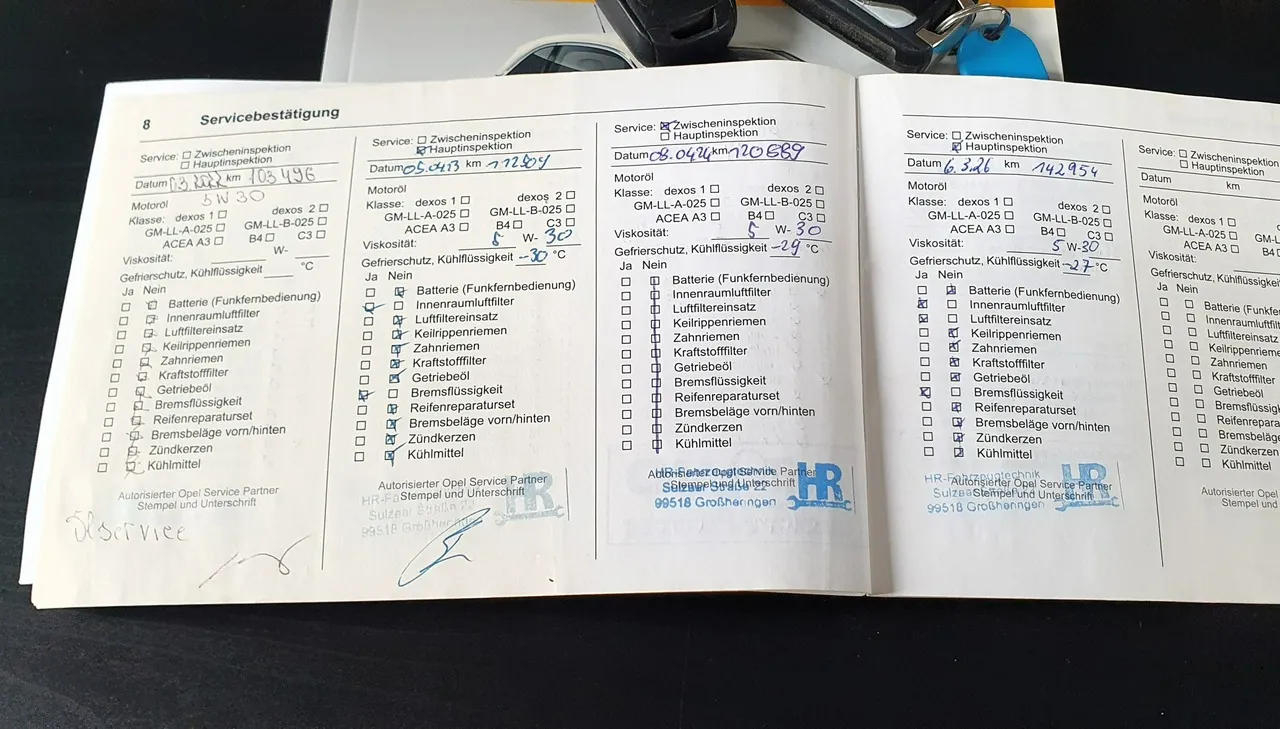 8 Servicebestätigung
Service: Zwischeninspektion
Hauptinspektion
Datum 03.2022 km 103 496
Motoröl 5W30
Klasse: dexos 1 dexos 2
GM-LL-A-025 GM-LL-B-025
ACEA A3 B4 C3
Viskosität: W-
Gefrierschutz, Kühlflüssigkeit °C
Ja Nein
Batterie (Funkfernbedienung)
Innenraumluftfilter
Luftfiltereinsatz
Keilrippenriemen
Zahnriemen
Kraftstofffilter
Getriebeöl
Bremsflüssigkeit
Reifenreparaturset
Bremsbeläge vorn/hinten
Zündkerzen
Kühlmittel
Autorisierter Opel Service Partner
Stempel und Unterschrift
Ölservice
Service: Zwischeninspektion
Hauptinspektion
Datum 05.04.23 km
Motoröl
Klasse: dexos 1 dexos 2
GM-LL-A-025 GM-LL-B-025
ACEA A3 B4 C3
Viskosität: 5 W- 30
Gefrierschutz, Kühlflüssigkeit -30 °C
Ja Nein
Batterie (Funkfernbedienung)
Innenraumluftfilter
Luftfiltereinsatz
Keilrippenriemen
Zahnriemen
Kraftstofffilter
Getriebeöl
Bremsflüssigkeit
Reifenreparaturset
Bremsbeläge vorn/hinten
Zündkerzen
Kühlmittel
Autorisierter Opel Service Partner
Stempel und Unterschrift
HR
Sulzaer Straße 22
99518 Großheringen
Service: Zwischeninspektion
Hauptinspektion
Datum 08.04.24 km 120689
Motoröl
Klasse: dexos 1 dexos 2
GM-LL-A-025 GM-LL-B-025
ACEA A3 B4 C3
Viskosität: 5 W- 30
Gefrierschutz, Kühlflüssigkeit -29 °C
Ja Nein
Batterie (Funkfernbedienung)
Innenraumluftfilter
Luftfiltereinsatz
Keilrippenriemen
Zahnriemen
Kraftstofffilter
Getriebeöl
Bremsflüssigkeit
Reifenreparaturset
Bremsbeläge vorn/hinten
Zündkerzen
Kühlmittel
Autorisierter Opel Service Partner
Stempel und Unterschrift
HR-Fahrzeugtechnik HR
Sulzaer Straße 22
99518 Großheringen
Service: Zwischeninspektion
Hauptinspektion
Datum 6.3.26 km 142954
Motoröl
Klasse: dexos 1 dexos 2
GM-LL-A-025 GM-LL-B-025
ACEA A3 B4 C3
Viskosität: 5 W-30
Gefrierschutz, Kühlflüssigkeit -27 °C
Ja Nein
Batterie (Funkfernbedienung)
Innenraumluftfilter
Luftfiltereinsatz
Keilrippenriemen
Zahnriemen
Kraftstofffilter
Getriebeöl
Bremsflüssigkeit
Reifenreparaturset
Bremsbeläge vorn/hinten
Zündkerzen
Kühlmittel
Autorisierter Opel Service Partner
Stempel und Unterschrift
HR-Fahrzeugtechnik HR
Sulzaer Straße
99518 Großheringen
Service: Zwischeninspektion
Hauptinspektion
Datum km
Motoröl
Klasse: dexos 1
GM-LL-A-025
ACEA A3
Viskosität:
Gefrierschutz, Kühlflüssigkeit
Ja Nein
Batterie (Funkfernbe
Innenraumluftfilter
Luftfiltereinsatz
Keilrippenriemen
Zahnriemen
Kraftstofffilter
Getriebeöl
Bremsflüssigkeit
Reifenreparatur
Bremsbeläge
Zündkerzen
Kühlmittel
Autorisierter Opel Se
Stempel und